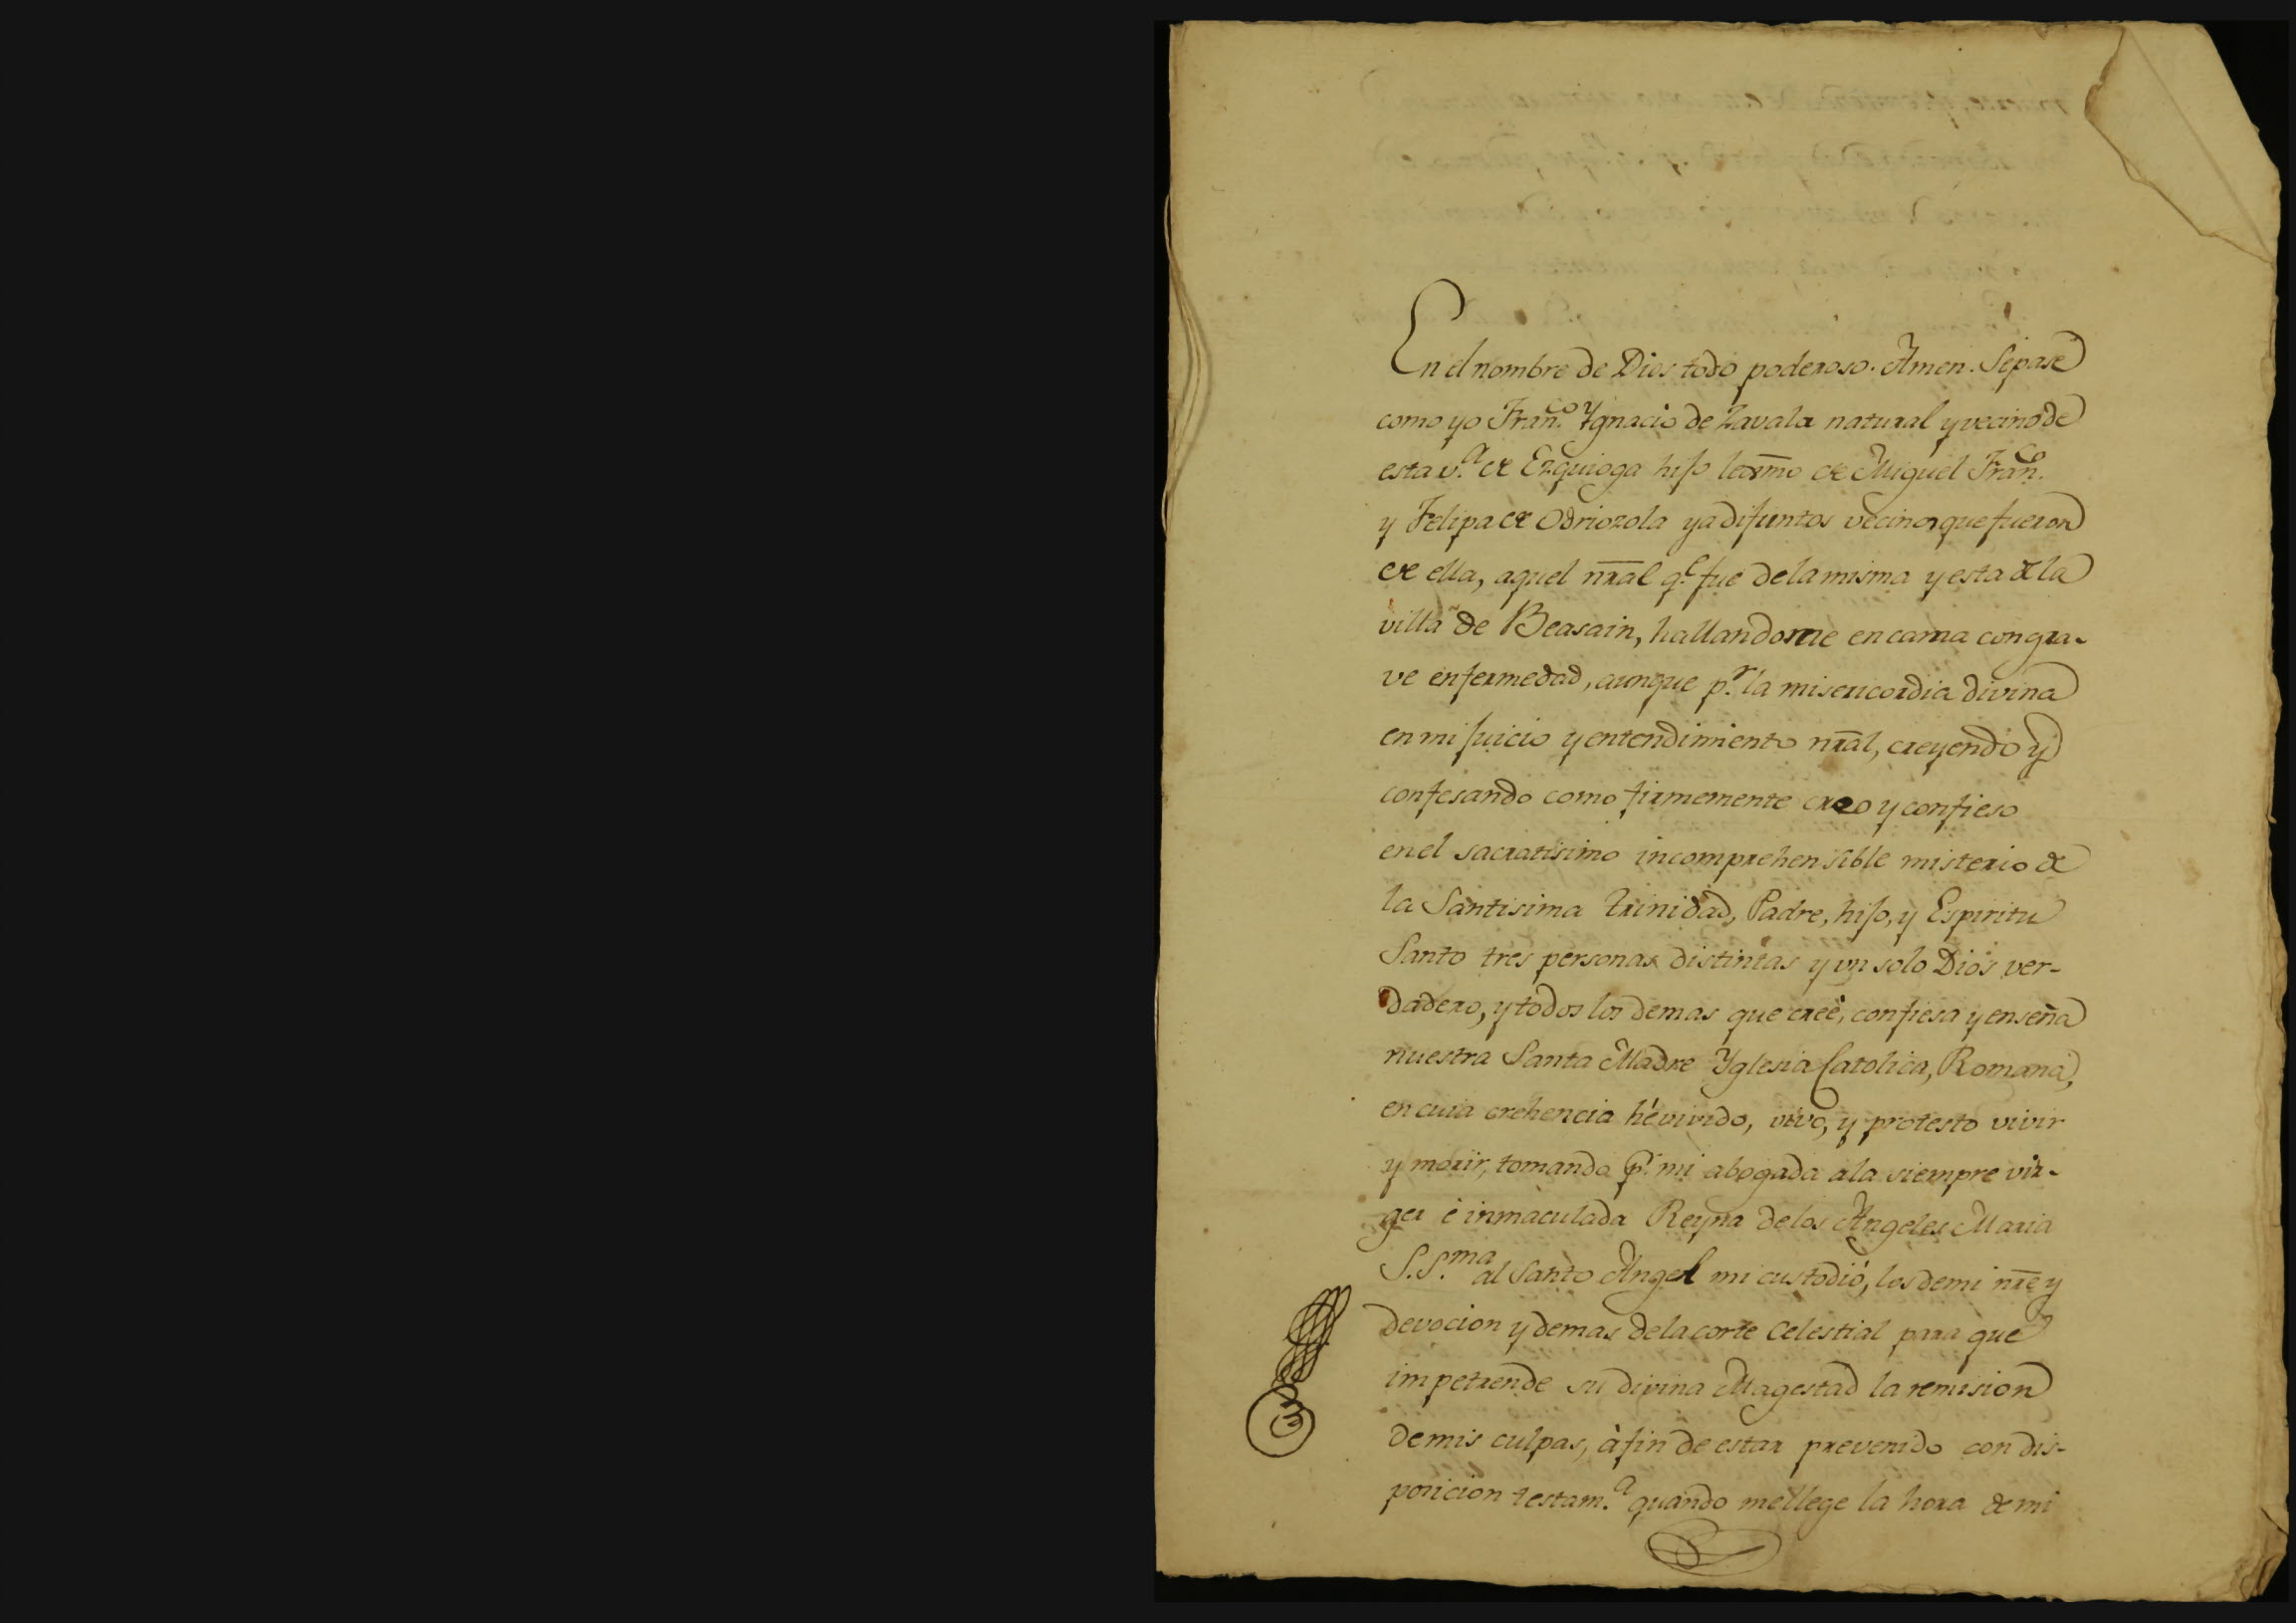 En el nombre de Dios todo poderoso. Amen. Sepase
como yo Fran.co Ygnacio de Zavala natural y vecino de
esta v.a de Ezquioga hijo lexmo de Miguel Fran.co
y Felipa de Odriozola ya difuntos vecinos que fueron
de ella, aquel nral q.e fue de la misma y esta de la
villa de Beasain, hallandome en cama con gra-
ve enfermedad, aunque p.r la misericordia divina
en mi juicio y entendimiento nral, creyendo y
confesando como firmemente creo y confieso
en el sacratisimo incomprehensible misterio de
la Santisima Trinidad, Padre, hijo, y Espiritu
Santo tres personas distintas y vn solo Dios ver-
dadero, y todos los demas que creè, confiesa y enseña
nuestra Santa Madre Yglesia Catolica, Romana,
en cuia crehencia hé vivido, vivo, y protesto vivir
y morir, tomando p.r mi abogada a la siempre vir-
gen è inmaculada Reyna de los Angeles Maria
S.S.ma al Santo Angel mi custodió, los de mi nre y
devocion y demas de la corte Celestial para que
impetren de su divina Magestad la remision
de mis culpas, à fin de estar prevenido con dis-
posicion testam.a quando me llege la hora de mi